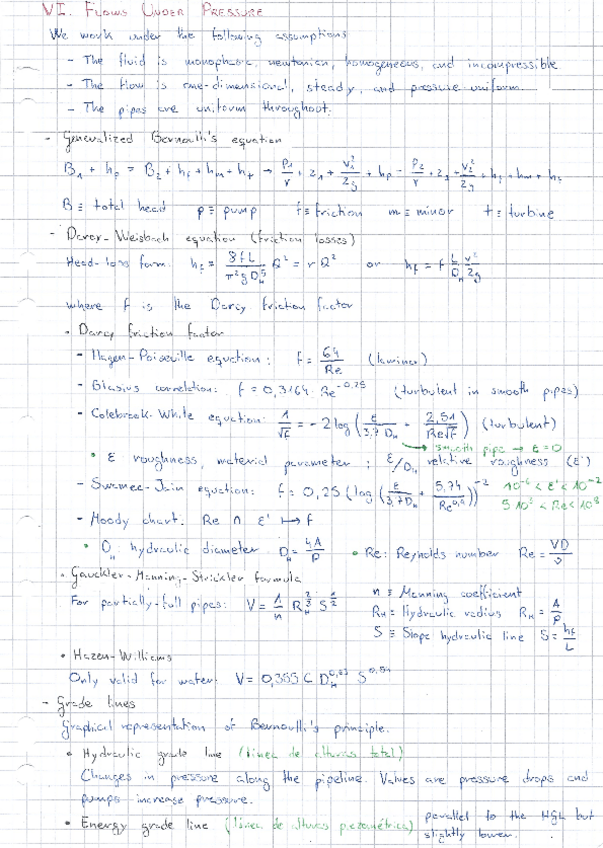 VI. FLOWS UNDER PRESSURE
We work under the following assumptions
- The fluid is monophasic, newtonian, homogeneous, and incompressible
- The flow is one-dimensional, steady, and pressure-uniform.
- The pipes are uniform throughout.
- Generalized Bernoulli's equation
B₁ + hₚ = B₂ + h_f + hₘ + hₜ → P₁/γ + z₁ + V₁²/2g + hₚ = P₂/γ + z₂ + V₂²/2g + h_f + hₘ + hₜ
B ≡ total head p ≡ pump f ≡ friction m ≡ minor t ≡ turbine
- Darcy-Weisbach equation (friction losses)
Head-loss form: h_f = 8fL/π²gD_H⁵ Q² = rQ² or h_f = f L/D_H v²/2g
where f is the Darcy friction factor
• Darcy friction factor
- Hagen-Poiseville equation: f = 64/Re (laminar)
- Blasius correlation: f = 0,3164 Re^-0,25 (turbulent in smooth pipes)
- Colebrook-White equation: 1/√f = -2 log(ε/3,7D_H + 2,51/Re√f) (turbulent)
→ smooth pipe → ε=0
• ε roughness, material parameter; ε/D_H relative roughness (ε')
- Swamee-Jain equation: f = 0,25 (log(ε/3,7D_H + 5,74/Re^0,9))^-2 10^-6 < ε' < 10^-2
5·10³ < Re < 10⁸
- Moody chart: Re ∩ ε' ↦ f
• D_H hydraulic diameter D_H = 4A/P • Re: Reynolds number Re = VD/ν
• Gauckler-Manning-Strickler formula
For partially-full pipes: V = 1/n R_H^2/3 S^1/2
n ≡ Manning coefficient
R_H ≡ Hydraulic radius R_H = A/P
S ≡ Slope hydraulic line S = h_f/L
• Hazen-Williams
Only valid for water: V = 0,355 C D_H^0,63 S^0,54
- Grade lines
Graphical representation of Bernoulli's principle.
• Hydraulic grade line (línea de alturas total)
Changes in pressure along the pipeline. Valves are pressure drops and
pumps increase pressure.
• Energy grade line (línea de alturas piezométrica) parallel to the HGL but
slightly lower.